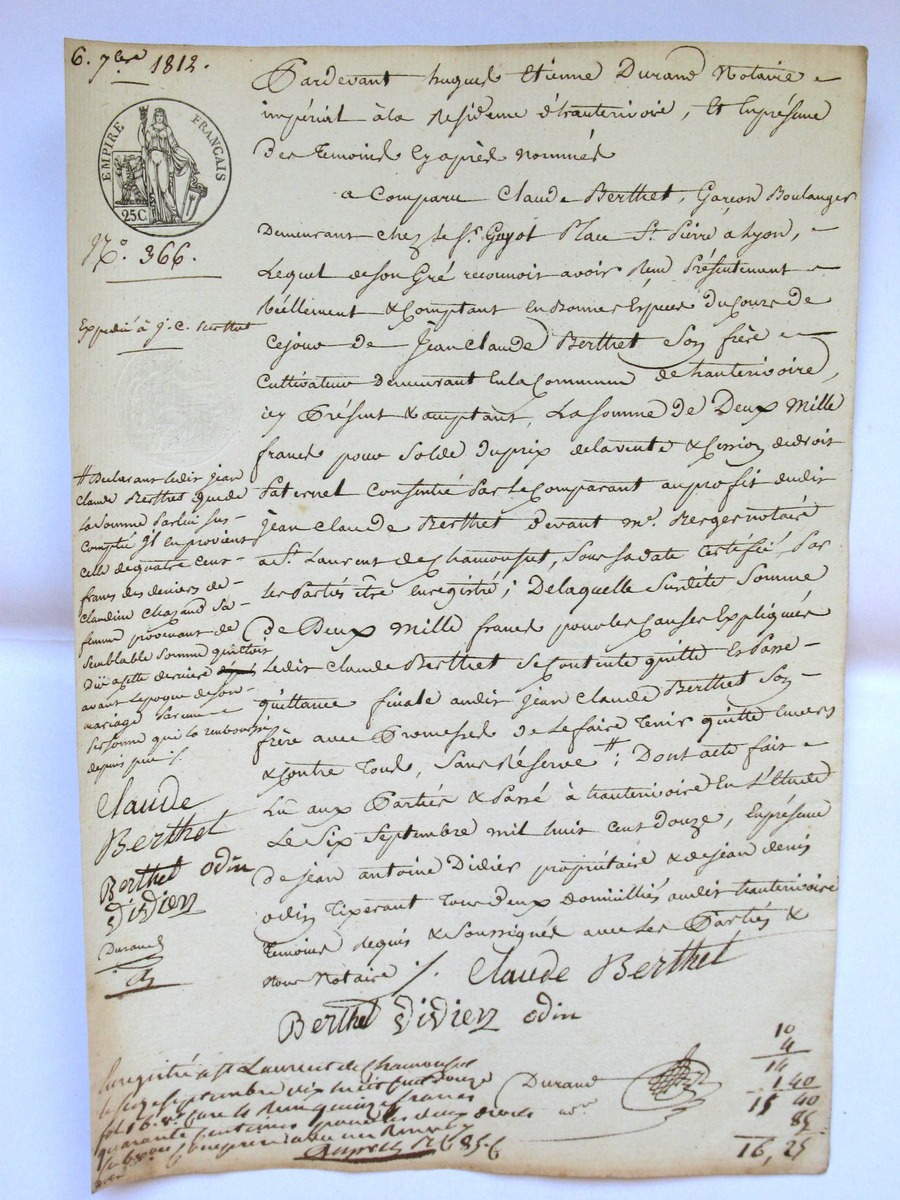 6. 7bre 1812.
EMPIRE FRANÇAIS
25C
N.o 366.
Expedié à J. C. Berthet
Pardevant hugues Etienne Durand Notaire
impérial à la Residence d'hauterivoire, Et Enprésence
des temoins cyaprès nommés
a Comparu Claude Berthet, Garçon Boulanger
Demeurant chez le Sr. Guyot Place St. Pierre à Lyon,
Lequel de son Gré reconnoit avoir Reçu Présentement
Réellement & Comptant en Bonnes Espèces du Cours de
Cejour de Jean Claude Berthet Son frère
Cultivateur Demeurant En la Commune de hauterivoire,
icy Présent & acceptant, La somme de Deux Mille
francs pour Solde du prix de la vente & Cession de droit
Paternel Consentie Par le Comparant au profit dudit
jean Claude Berthet devant me. Berger notaire
a St. Laurent de Chamousset, sous sa date Certifié, Par
les Parties être enregistré; De laquelle Susdite Somme
de Deux Mille francs pour les Causes Expliquées
Ledit Claude Berthet se Contente quitte Et Passe
quittance finale audit Jean Claude Berthet Son
frère avec Promesses de Le faire tenir quitte Envers
& Contre Tous, Sans Réserve #; Dont acte fait
Lu aux Parties & Passé à hauterivoire En L'étude
Le Six Septembre mil huit Cent Douze, En présence
de jean antoine Didier propriétaire & de jean denis
odin Tixerant Tous Deux Domiciliés audit hauterivoire
Temoins requis & Soussignés avec Les Parties &
Nous Notaire ./. Claude Berthet
Berthet Didier odin
# Declarant ledit jean
Claude Berthet que de
La Somme Par lui Sus
Comptée il en provient
Celle de quatre Cent
francs des deniers de
Claudine Chazaud Sa
femme provenant de
Semblable Somme quittois
Düe a cette derniere
avant l'epoque de son
mariage Par une
Personne qui la remboursé
depuis peu ./.
Claude
Berthet
Berthet odin
Didier
Durand
Enregistré a St Laurent de Chamousset
le Septembre dix huit cent douze
fol 16. vo. Reçu quinze francs
quarante Centimes pour les deux droits
85 c
Durand
nore.
10
4
14
1 40
15 40
85
16, 25